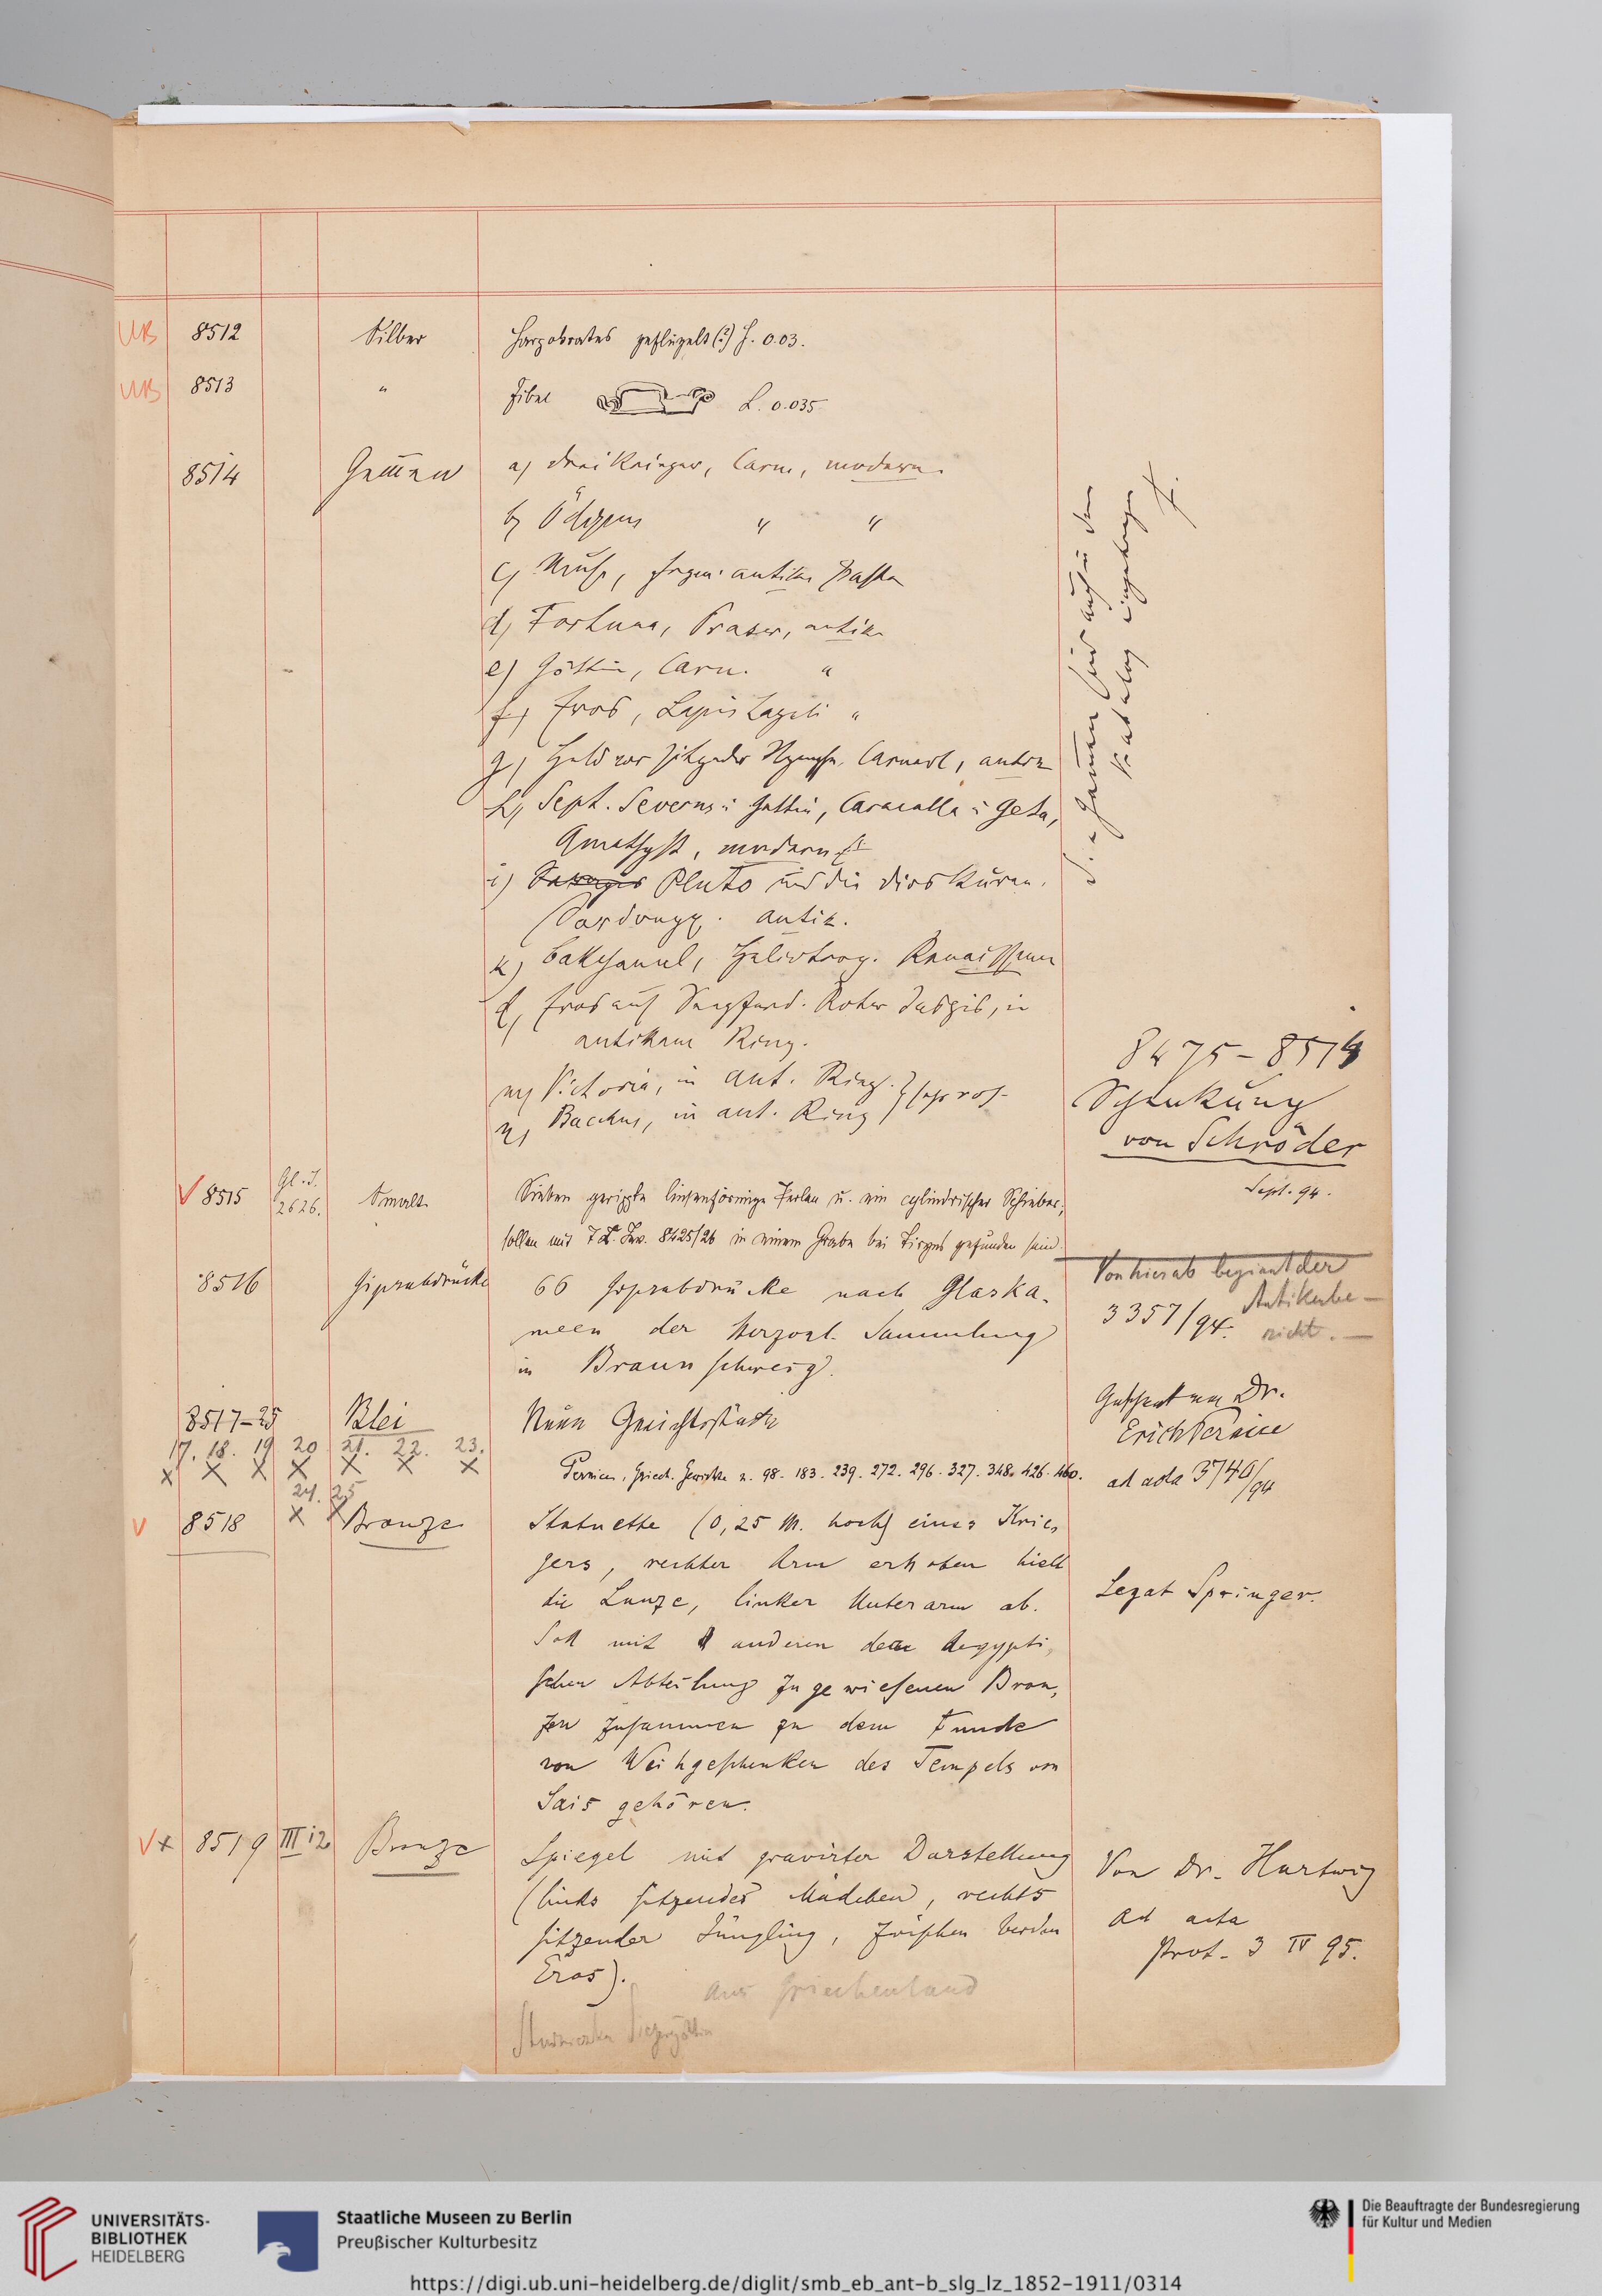 UB 8512 Silber Harpokrates geflügelt (?) H. 0.03.
UB 8513 " Fibel L. 0.035
8514 Gem̅en a) drei Krieger, Carn., modern.
b) Ödipus " "
c) Muse, fragm. antike Paste
d) Fortuna, Praser, antik
e) Göttin, Carn. "
f) Eros, Lapis Lazuli "
g) Held vor sitzender Nymphe, Carneol, antik
h) Sept. Severus u. Gattin, Caracalla u. Geta,
Amethyst, modern
i) Serapis Pluto und die Dioskuren.
Sardonyx. antik.
k) Bakchanal, Heliotrop. Renaissance
l) Eros auf Seepferd. Roter Jaspis, in
antikem Ring.
m) Victoria, in ant. Ring.
n) Bacchus, in ant. Ring
Gem̅en sind auch in dem
Katalog eingetragen
F.
8475-8514
Schenkung
von Schröder
Sept. 94.
V 8515 Gl. J. 2626. Smalt Sieben gerippte linsenförmige Perlen u. ein cylindrischer Schieber;
sollen mit T. C. Inv. 8425/26 in einem Grabe bei Tiryns gefunden sein.
Von hier ab beginnt der
Antikenbe-
richt.
8516 Gipsabdrücke 66 Gipsabdrücke nach Glaska-
meen der Herzogl. Sammlung
in Braunschweig.
3357/94.
8517-25 Blei Neun Gewichtstücke
Geschenk von Dr.
Erich Pernice
17. 18. 19 20 21. 22. 23.
x x x x x x x
24. 25
x x
Pernice, Griech. Gewichte n. 98. 183. 239. 272. 296. 327. 348. 426. 460.
ad acta 3740/94
V 8518 Bronze Statuette (0,25 M. hoch) eines Krie-
gers, rechter Arm erhoben hielt
die Lanze, linker Unterarm ab.
Soll mit anderen der Aegypti-
schen Abteilung zugewiesenen Bron-
zen zusammen zu dem Funde
von Weihgeschenken des Tempels von
Sais gehören.
Legat Springer.
V x 8519 III i 2 Bronze Spiegel mit gravirter Darstellung
(links sitzendes Mädchen, rechts
sitzender Jüngling, zwischen beiden
Eros).
aus Griechenland
Studniczka Siegesgöttin
Von Dr. Hartwig
ad acta
Prot. 3 IV 95.
UNIVERSITÄTS-
BIBLIOTHEK
HEIDELBERG
Staatliche Museen zu Berlin
Preußischer Kulturbesitz
Die Beauftragte der Bundesregierung
für Kultur und Medien
https://digi.ub.uni-heidelberg.de/diglit/smb_eb_ant-b_slg_lz_1852-1911/0314